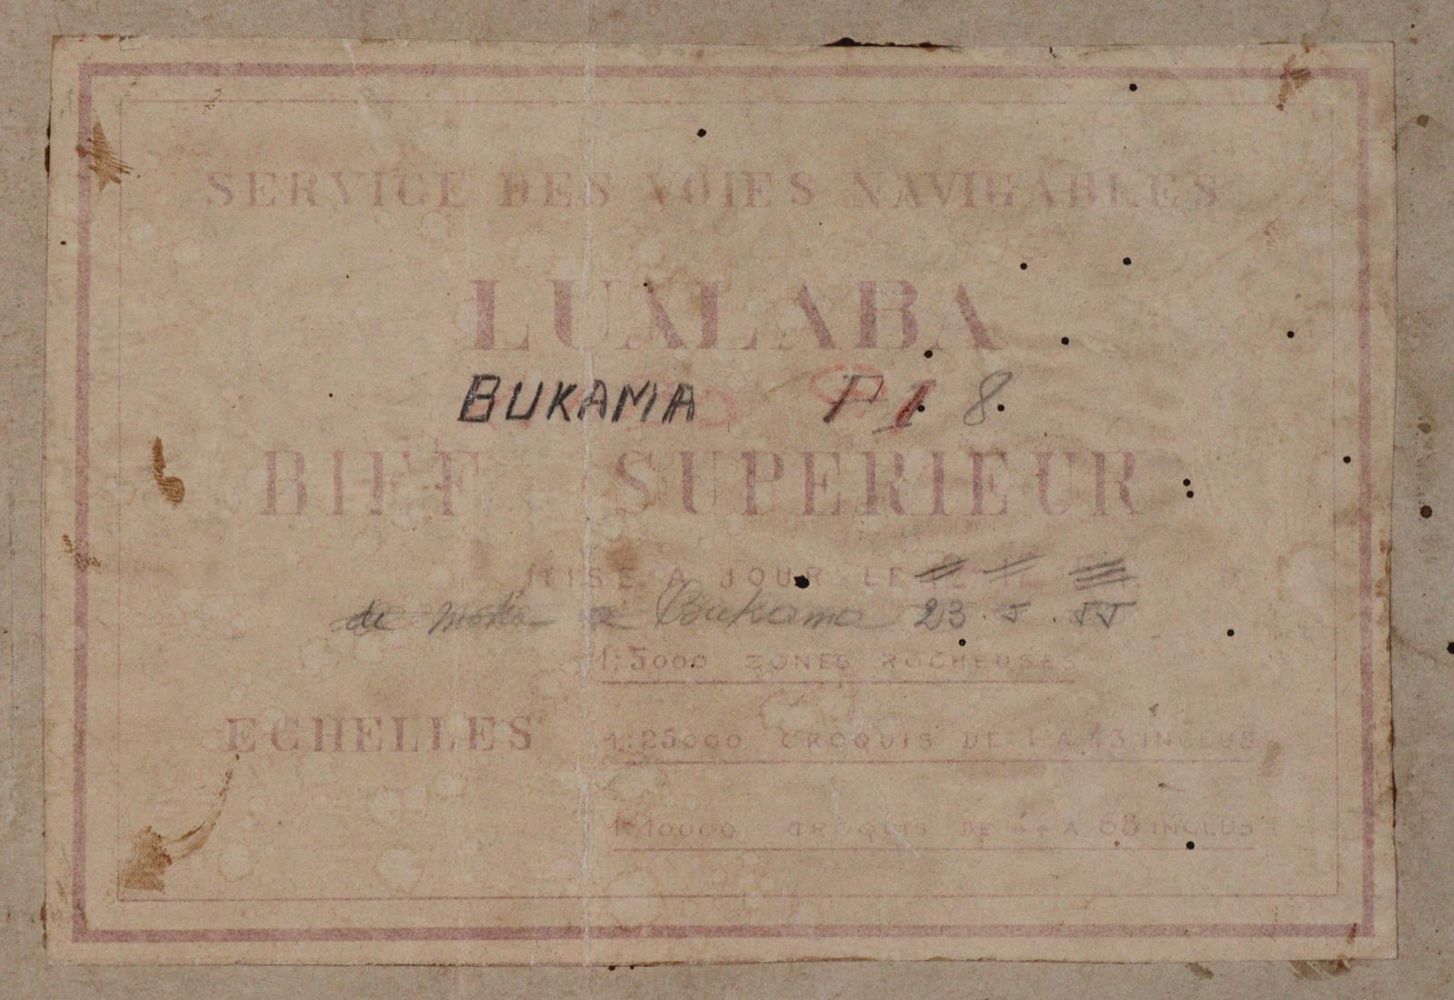 SERVICE DES VOIES NAVIGABLES
LUALABA
BUKAMA P1 8.
BIEF SUPERIEUR
MISE A JOUR LE
Bukama 23.5.55
1:5000 ZONES ROCHEUSES
ECHELLES 1:25000 CROQUIS DE 1 A 43 INCLUS
1:10000 CROQUIS DE 44 A 68 INCLUS